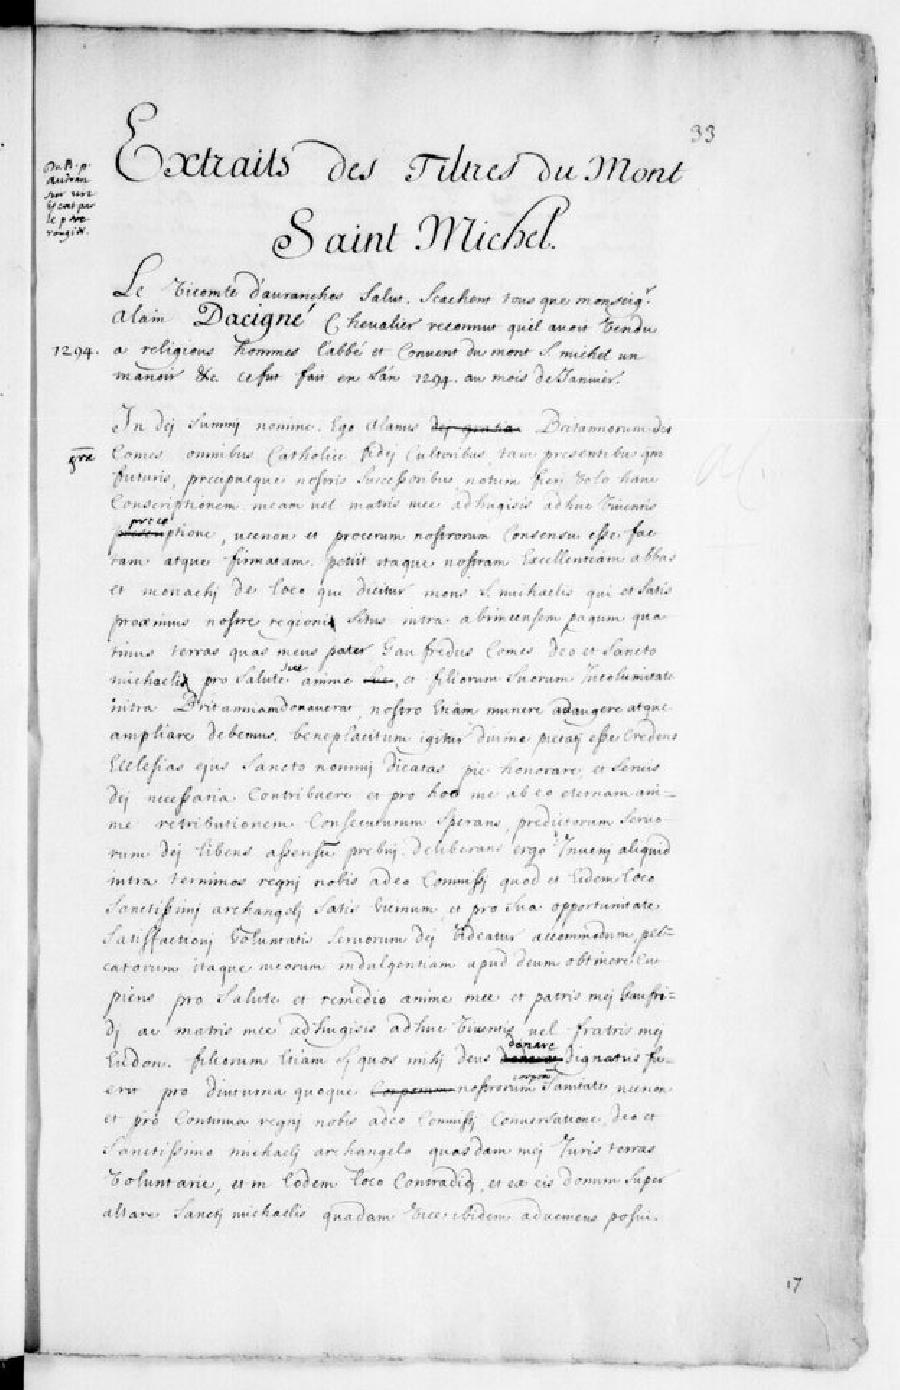 33
Extraits des Tiltres du Mont
Saint Michel.
Du R. p.
audran
sur une
le pere
Le Vicomte d'auranches Salut. Scachent tous que monseigr.
Alain Dacigné Chevalier reconnut quil avoit Vendu
1294. a religious hommes l'abbé et Convent du mont S. michel un
manoir &c. ce fut fait en L'an 1294. au mois de Janvier.
In dej Summj nomine. Ego Alanus dej gratia Britannorum dei
gra Comes omnibus Catholice fidej Cultoribus, tam presentibus qm
futuris, precipueque nostris Successoribus notum fieri Volo hanc
Conscriptionem meam vel matris mee adhugisis adhuc Viventis
prece
ptione, necnon et procerum nostrorum Consensu esse fac
tam atque firmatam. petiit itaque nostram Excellentiam abbas
et monachj de loco qui dicitur mons S. michaelis qui et Satis
proximus nostre regionis Situs intra abrincensem pagum qua
tinus terras quas meus pater Gaufredus Comes deo et Sancto
michaeli pro Salute sue anime sue, et filiorum Suorum Incolumitate
intra Britanniam donaverat, nostro Etiam munere adaugere atque
ampliare debemus. beneplacitum igitur divine pietatj esse Credens
Ecclesias ejus Sancto nominj dicatas pie honorare, et Servis
dej necessaria Contribuere et pro hoc me ab eo eternam ani=
me retributionem Consecuturum Sperans, predictorum Servo
rum dej libens assensū prebuj. deliberans ergo Invenj aliquid
intra terminos regnj nobis adeo Commissj quod et Eidem loco
Sanctissimj archangelj Satis Vicinum, et pro Sua opportunitate
Satisfactionj Voluntatis Servorum dej Videatur accommodum, pec=
catorum itaque meorum indulgentiam apud deum obtinere Cu
piens pro Salute et remedio anime mee et patris mej Gaufri=
dj ac matris mee adhugisis adhuc Viventis vel fratris mej
donare
Eudon. filiorum Etiam Sj quos mihj deus dignatus fu=
corporū
erit pro diuturna quoque Corporum nostrorum Sanitate necnon
et pro Continua regnj nobis adeo Commissj Conversatione, deo et
Sanctissimo michaelj archangelo quasdam mej Juris terras
Voluntarie, et in Eodem loco Contradidj, et ex eis donum Super
altare Sanctj michaelis quadam Vice ibidem adveniens posui.
17